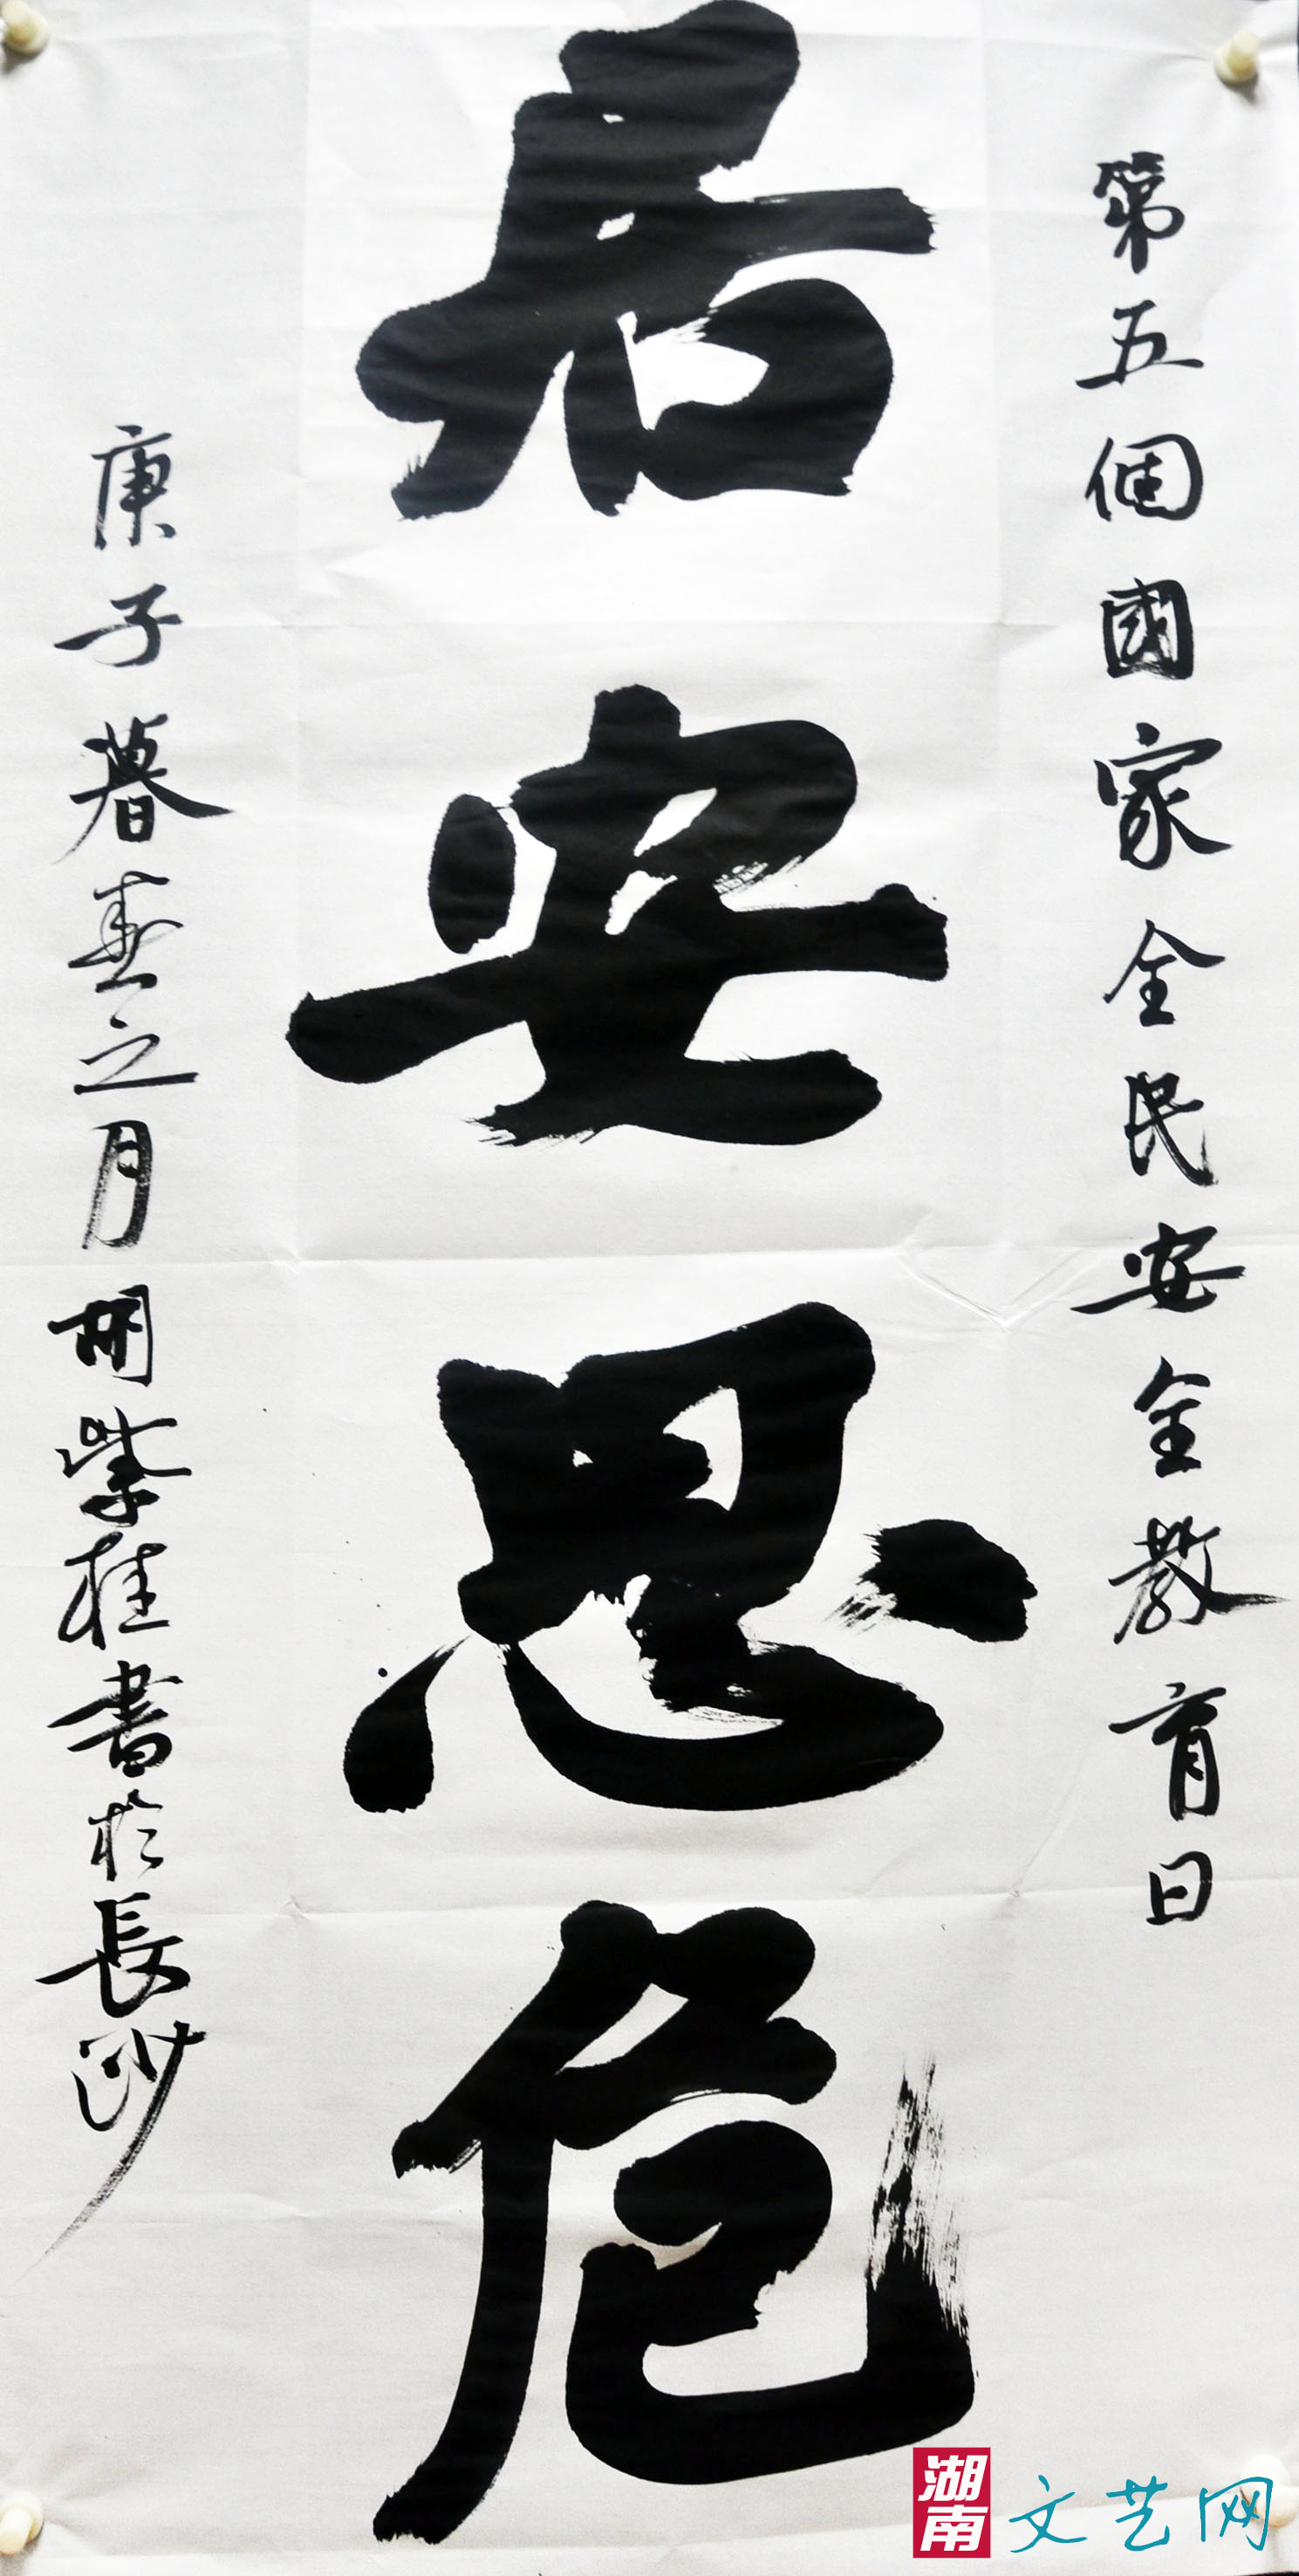 第五個國家全民安全教育日
居安思危
庚子暮春之月胡紫桂書於長沙
湖南
文艺网